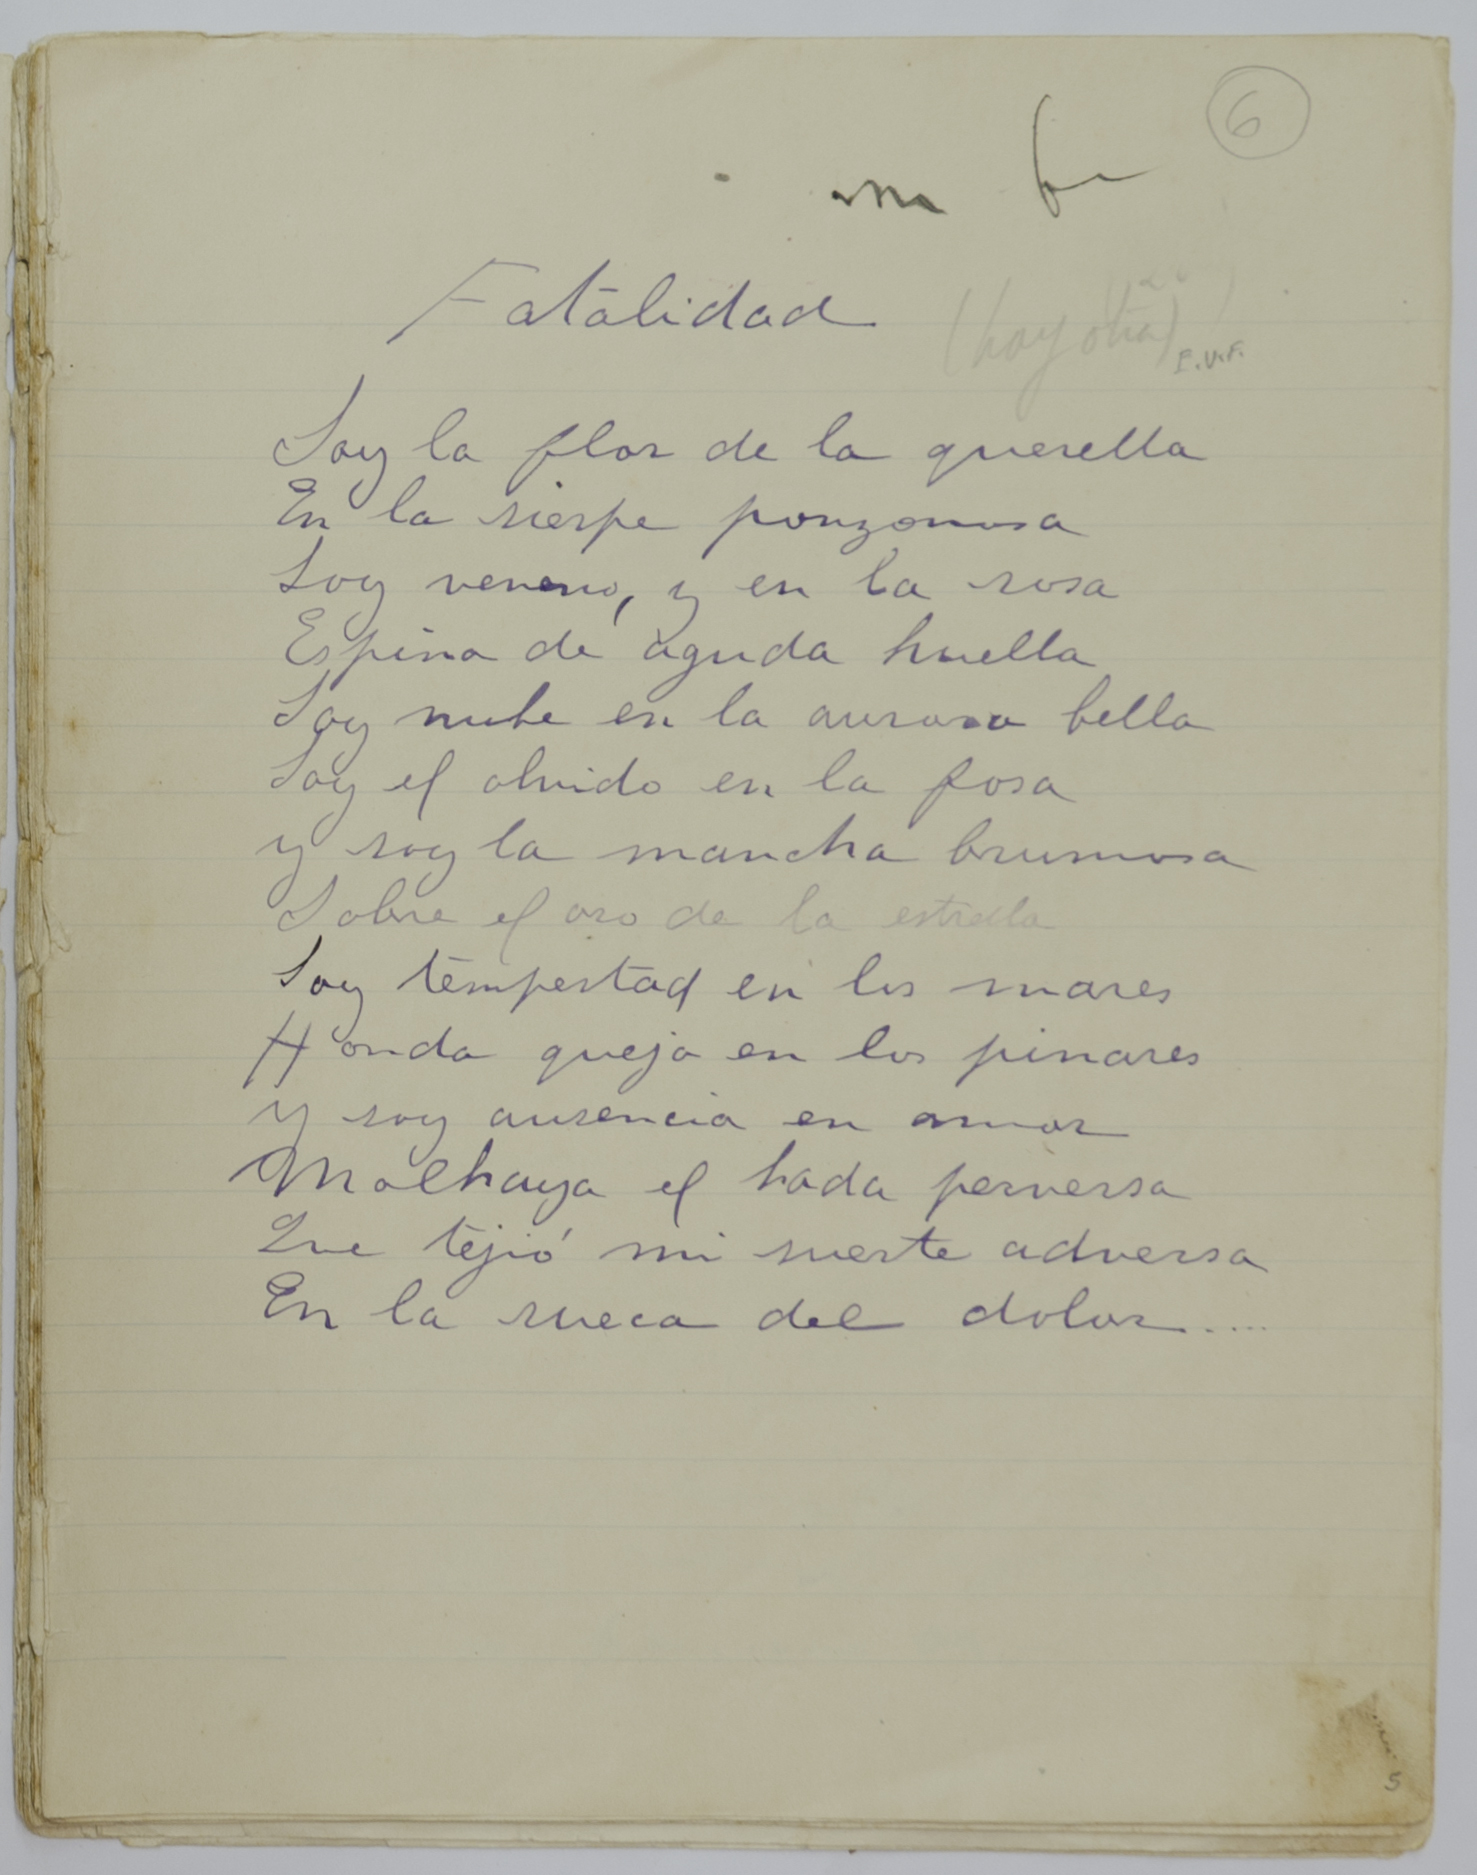 6
Fatalidad
(hay otra)
E.V.F.
Soy la flor de la querella
En la sierpe ponzonosa
Soy veneno, y en la rosa
Espina de aguda huella
Soy nube en la aurora bella
Soy el olvido en la fosa
y soy la mancha brumosa
Sobre el oro de la estrella
Soy tempestad en los mares
Honda queja en los pinares
y soy ausencia en amor
Malhaya el hada perversa
Que tejió mi suerte adversa
En la rueca del dolor.....
5